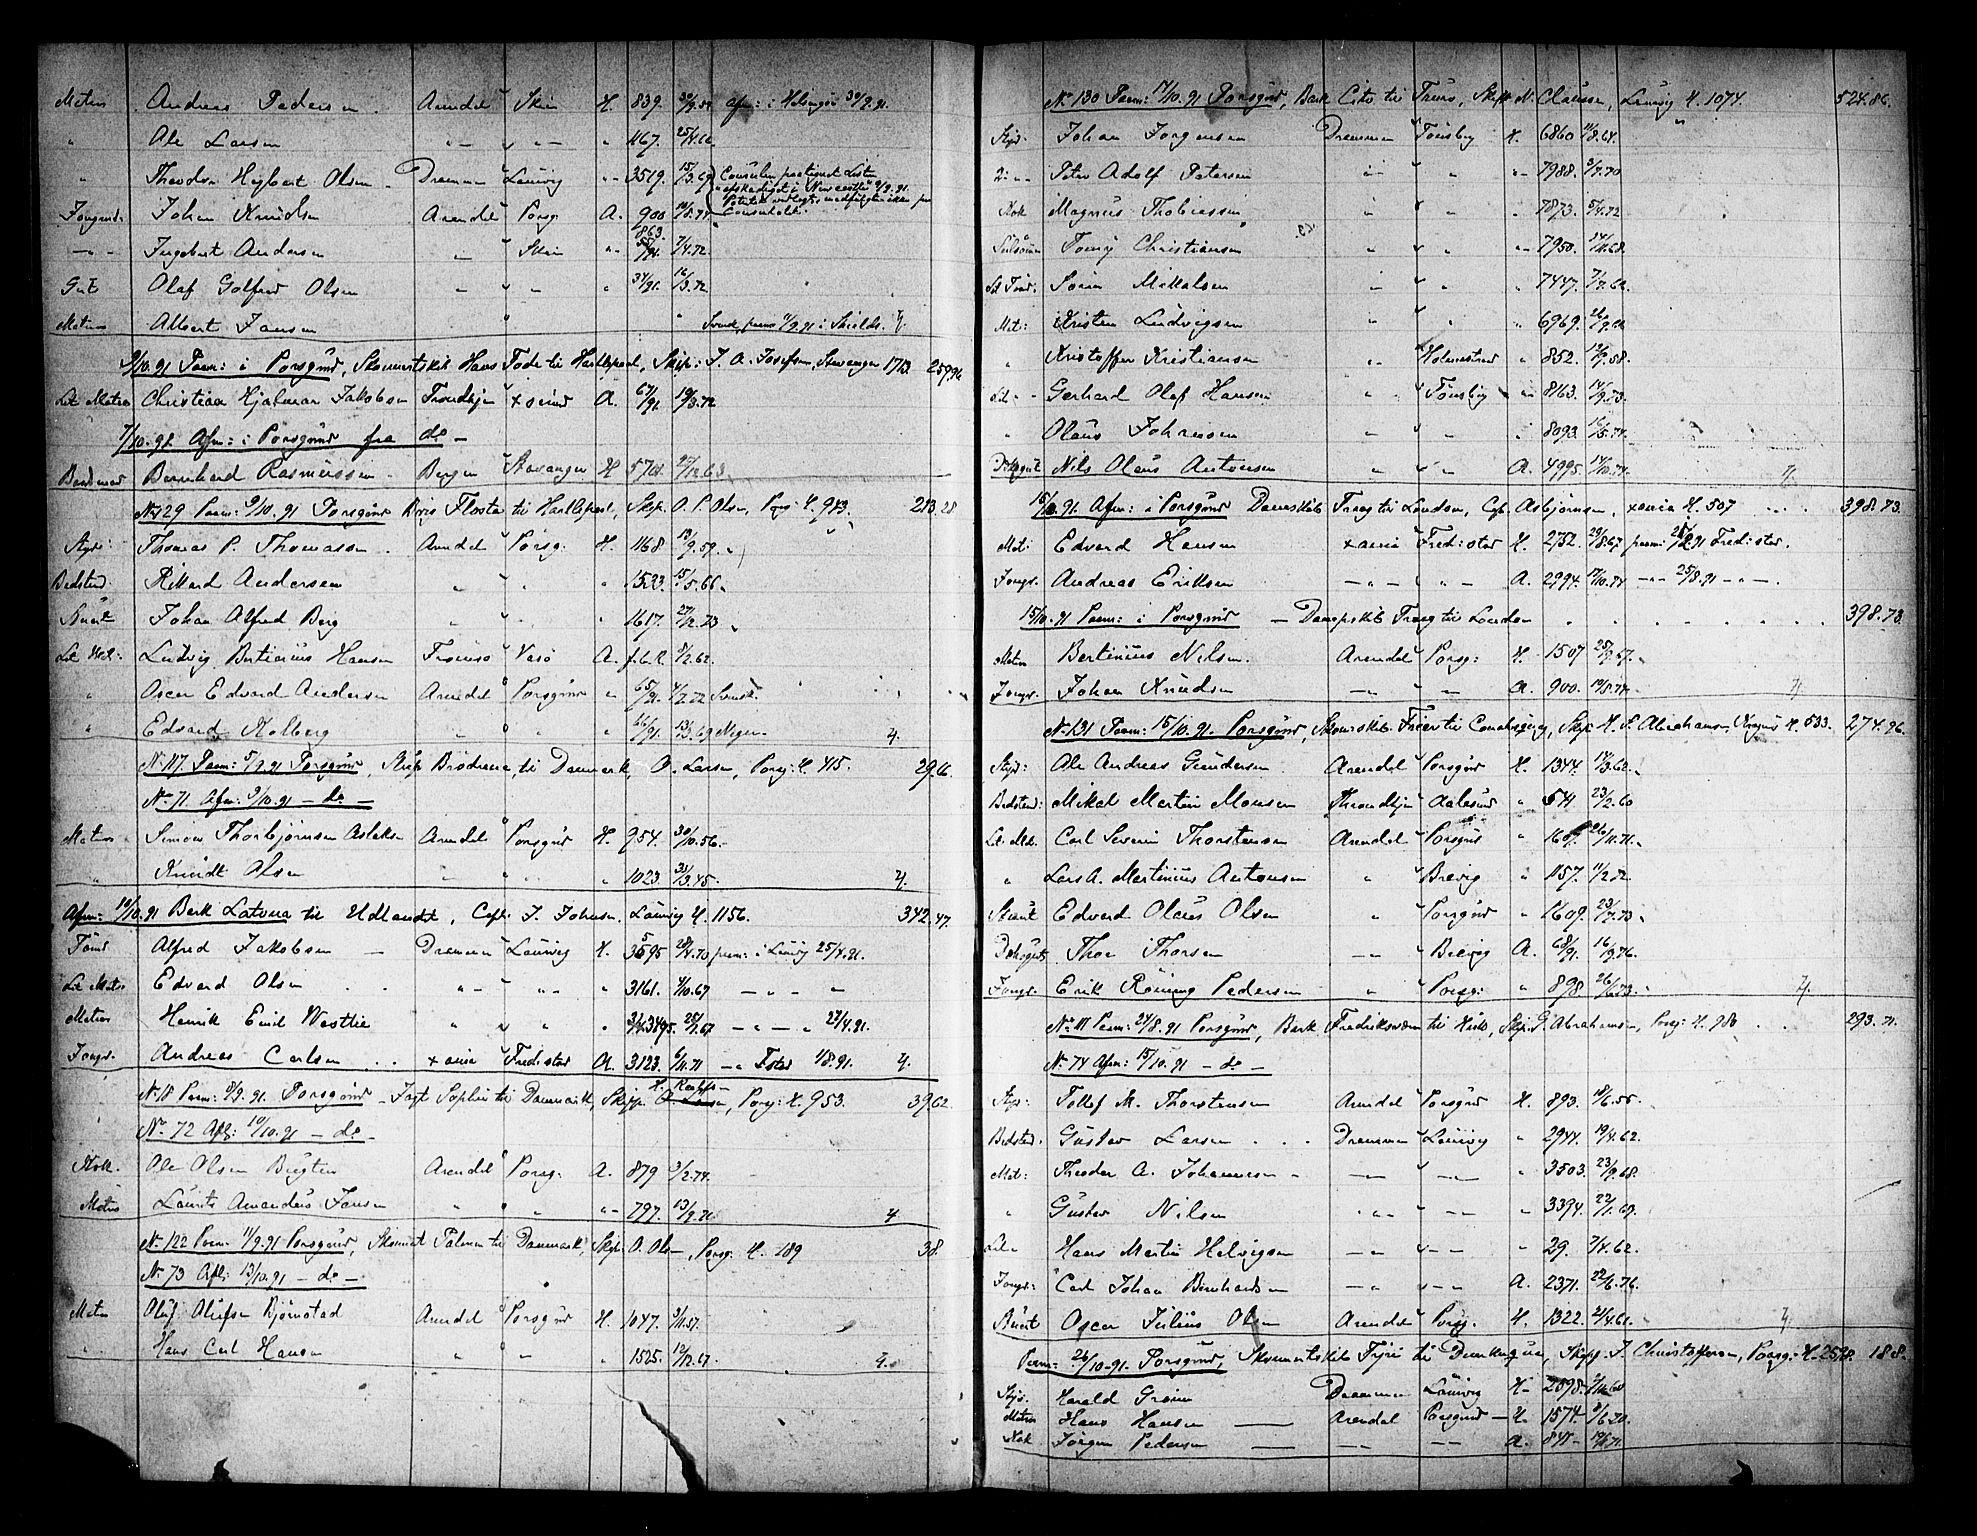 Matros Andreas Pedersen Arendal Skien H. 839. 30/9.59 Afm: i Helsingør 30/9.91.
" Ole Larsen " — " — " 1167. 25/4.66
" Theodor Heybert Olsen Drammen Laurvig " 3519. 15/3.69 Consulen paategnet Listen
afskediget i Newcastle 9/9.91.
Jongmd. Johan Knudsen Arendal Porsg. A. 900 10/5.74 Consulatet.
— " — Ingebert Andersen " Skien " 863. 7/4.72
Gut Olaf Golfred Olsen " " " 34/91. 16/3.72
Matros Albert Jansen " " Svensk, paam: 11/9.91 i Shields. 7.
9/10.91 Paam: i Porsgrund, Skonnertskib Hans Tode til Hartlepool, Skip: J. A. Josefsen, Stavanger 1713 259.96
Let Matros Christian Hjalmar Jakobsen Trondhjem Xsund A. 67/91. 19/3.72
7/10.91. Afm: i Porsgrund fra do —
Baadsmand Bernhard Rasmussen Bergen Stavanger H 5701. 27/12.63. —
No 129 Paam: 9/10.91 Porsgrund Brig Flosta til Hartlepool, Skip. O. P. Olsen, Porsg. H. 943. 213.28
Styr: Thomas P. Thomassen Arendal Porsg. H. 1168 13/9.59.
Bedstmd: Rikard Andersen " " " 1533. 15/5.66.
Stuert Johan Alfred Berg " " " 1617. 27/12.73
Let Mat: Ludvig Bertinius Hansen Tromsø Vasø A. f.l.R. 8/2.62.
" Oscar Edvard Andersen Arendal Porsgrund " 65/91. 4/2.72 Svensk.
" Edvard Holberg " " " 66/91. 13/3.69 Neger. 4.
No 117. Paam: 5/9.91 Porsgrund, Skip Brødrene, til Danmark, O. Larsen, Porsg: H. 415. 29.66.
No 71. Afm: 9/10.91 — do —
Matros Simon Thorbjørnsen Aslaksen Arendal Porsgrund H. 954. 30/10.56.
" Knudt Olsen " " " 1023. 31/3.45. 4.
Afm: 10/10.91 Bark Latona til Udlandet, Capt. J. Johnsen. Laurvig H. 1156. 342.47.
Tømd Alfred Jakobsen — Drammen Laurvig H. 3595 28/4.70 paam: i Laurvig 25/4.91.
Let Matr. Edvard Olsen " — " " — " 3161. 4/10.67 — " — " —
Matros Henrik Emil Westlie " " " " 31/91.3495. 25/1.67 — " — " 22/4.91.
Jongr. Andreas Carlsen Xania Fredrstad A. 3123. 6/11.71 — " Fstad 1/8.91. 4.
No 18 Paam: 8/9.91. Porsgrund — Jagt Sophie til Danmark, Skipp. H. Realfs—, Porsg: H. 953. 39.62.
No 72 Afl: 10/10.91 — do —
Kok. Ole Olsen Bugten Arendal Porsg. A. 879 3/2.74.
Matros Laurits Amandus Jansen " " " 797. 13/9.71. 4
No 122 Paam: 11/9.91 Porsgrund, Skonnert Palmen til Danmark, Skip: O. Ols—, Porsg. H. 189 38.
No 73 Afl: 13/10.91 — do —
Matros Oluf Olufsen Bjørnstad Arendal Porsgrund H. 1047. 3/11.57.
" Hans Carl Hansen " " " 1525. 12/12.67. 4.
No 130 Paam: 17/10.91 Porsgrund, Bark Cito til Truro, Skip N. Clausen, Laurvig H. 1074. 524.86.
Styr. Johan Jørgensen Drammen Tønsbg H. 6860 11/8.64.
2: " Peter Adolf Petersen " — " " 7988. 3/7.70
Kok Magnus Thobiassen " " " 7873. 5/4.72
Seilsøm Tomy Christiansen " " " 7950. 24/11.68.
Let Tømd. Søren Mikkalsen " " " 7447. 7/7.62.
Mat: Kristen Ludvigsen " " " 6969. 26/9.66
" Kristoffer Kristiansen " Holmestrand " 852. 12/9.58.
Let " Gerhard Olaf Hansen " Tønsbg " 8163. 14/9.73.
" Olaus Johansen " " " 8093. 16/5.74.
Dæksgut Nils Olaus Antonsen " " A. 4995. 14/10.74. 7.
15/10.91. Afm: i Porsgrund Dampskib Traag til London, Cap. Asbjørnsen, Xania H. 507 398.73.
Mat: Edvard Hansen Xania Fredrstad H. 2752. 29/8.67 paam: 25/8.91 Fredrstad.
Jongr. Andreas Eriksen — " — " " — A. 2994. 17/10.74 — " — 25/8.91 — " —.
15/10.91 Paam: i Porsgrund — Dampskib Traag til London 398.73.
Matros Bertinius Nilsen. Arendal Porsg: H. 1507 25/9.67.
Jongr. Johan Knudsen — " — " — A. 900. 10/5.74. 7.
No 131 Paam: 15/10.91. Porsgrund, Skonnertskib Freier til Conahsqvay, Skip H. S. Abrahamsen, Kragerø H. 533. 274.96.
Styr: Ole Andreas Gundersen Arendal Porsgrund H. 1344. 14/3.62.
Bedstmd: Mikal Martin Monsen Throndhjem Aalesund " 541 23/2.60
Let. Mat. Carl Severin Thorstensen Arendal Porsgrund " 1607. 26/11.71.
" Lars A. Martinius Antonsen " Brevig " 1157. 11/2.72.
Stuert Edvard Olaus Olsen " Porsgrund " 1609. 23/7.73.
Dæksgut Thor Thorsen — " Brevig A. 68/91. 16/9.76.
Jongr. Erik Rønning Pedersen " Porsg: " 898 26/6.73. 7.
No 111 Paam: 24/8.91 Porsgrund, Bark Fredriksværn til Hisö, Skip: G. Abrahamsen, Porsg: H. 980 293.71.
No 74 Afm: 15/10.91 — do —
Styr: Tollef M. Thorstensen Arendal Porsgrund H. 893. 18/6.55.
Bedstmd. Gustav Larsen Drammen Laurvig " 2944. 19/4.62.
Mat: Theodor A. Johannesen — — " — " 3503. 23/9.68.
" Gustav Nilsen " " — " — " 3394. 22/1.69.
Let " Hans Martin Helvigsen — " " — " 29. 7/4.62.
Jongr: Carl Johan Bernhardsen — " " — A. 2371. 22/6.76.
Stuert Oscar Julius Olsen Arendal Porsg. H. 1322. 21/4.61. 7.
Paam: 26/10-91. Porsgrund, Skonnertskib Freir til Dunkerque, Skip. J. Christoffersen, Porsg: H. 2598. 188.
Styr. Harald Grøm Drammen Laurvig H — 2598. 2/11.60
Matros Hans Hansen — Arendal Porsgrund — H. 1574. 8/6.70.
Kok Jørgen Pedersen — — — A. 845 — 19/8.71.